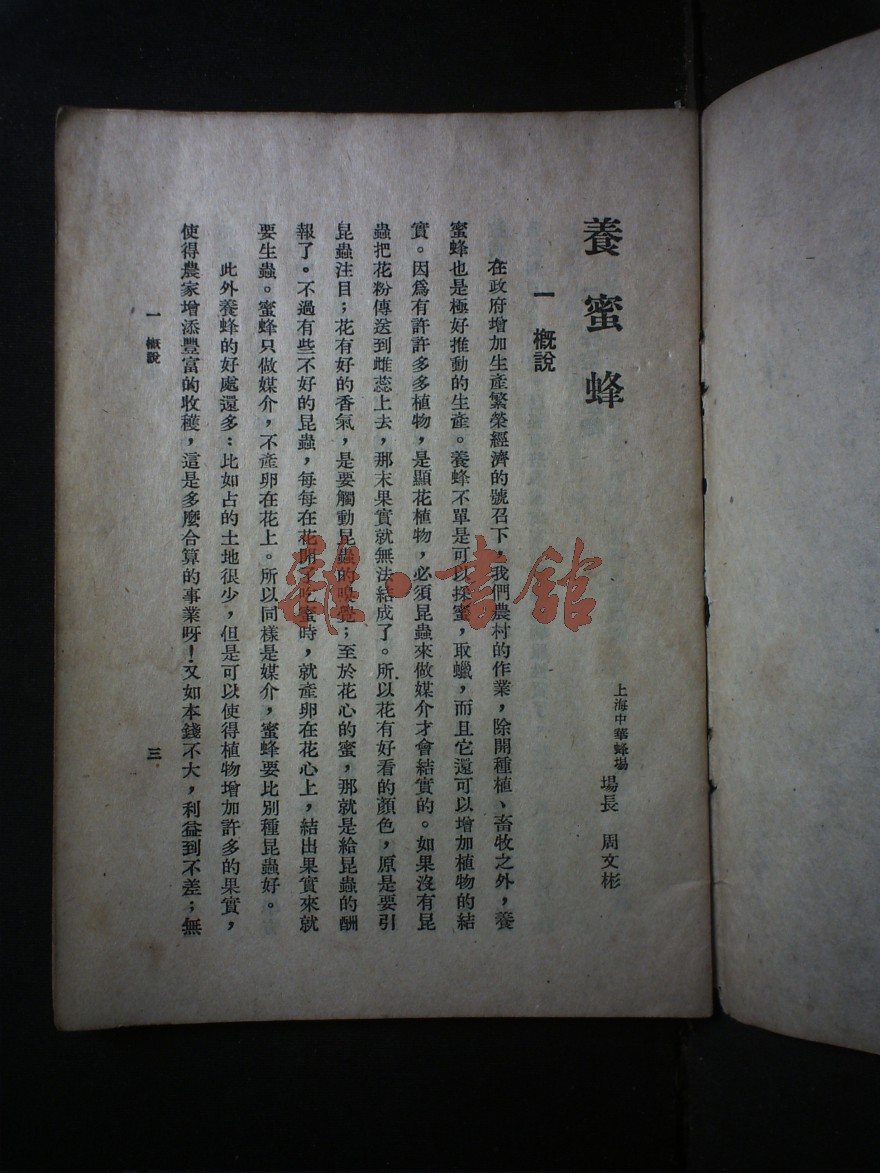 養蜜蜂
上海中華蜂場 場長 周文彬
一 概說
在政府增加生產繁榮經濟的號召下，我們農村的作業，除開種植、畜牧之外，養
蜜蜂也是極好推動的生產。養蜂不單是可以採蜜，取蠟，而且它還可以增加植物的結
實。因爲有許許多多植物，是顯花植物，必須昆蟲來做媒介才會結實的。如果沒有昆
蟲把花粉傳送到雌蕊上去，那末果實就無法結成了。所以花有好看的顏色，原是要引
昆蟲注目；花有好的香氣，是要觸動昆蟲的嗅覺；至於花心的蜜，那就是給昆蟲的酬
報了。不過有些不好的昆蟲，每每在花開了吃蜜時，就產卵在花心上，結出果實來就
要生蟲。蜜蜂只做媒介，不產卵在花上。所以同樣是媒介，蜜蜂要比別種昆蟲好。
此外養蜂的好處還多：比如占的土地很少，但是可以使得植物增加許多的果實，
使得農家增添豐富的收穫，這是多麼合算的事業呀！又如本錢不大，利益到不差；無
一 概說
三
雜·書館